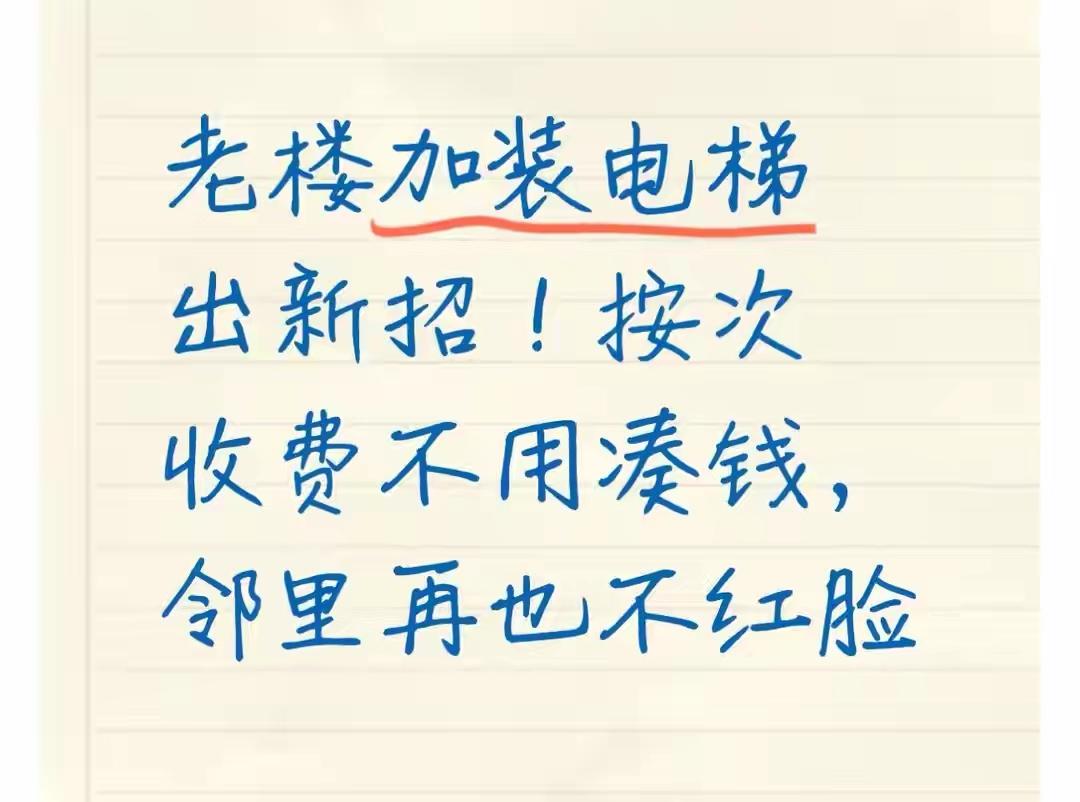 老楼加装电梯
出新招！按次
收费不用凑钱，
邻里再也不红脸